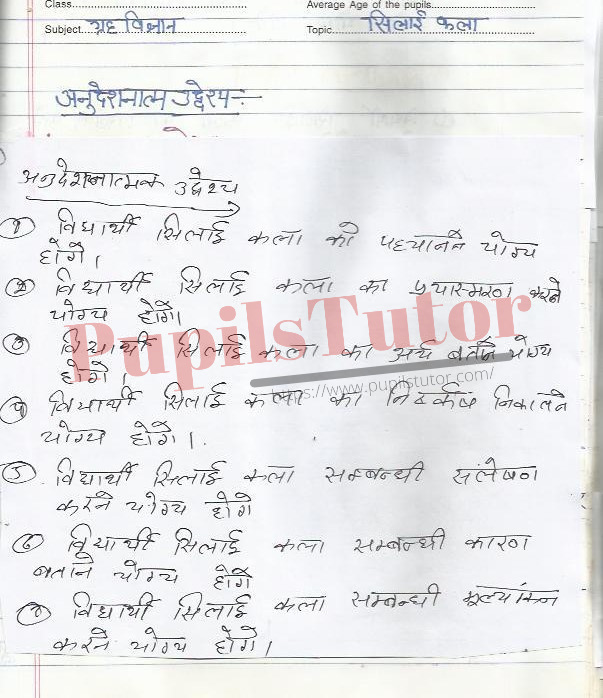 Class
Average Age of the pupils
Subject ग्रह विज्ञान
Topic सिलाई कला
अनुदेशनात्म उद्देश्य :-
अनुदेशनात्मक उद्देश्य
१ विधार्थी सिलाई कला को पहचानने योग्य
होंगे।
२ विधार्थी सिलाई कला का प्रयास्मरण करने
योग्य होंगे।
३ विधार्थी सिलाई कला का अर्थ बताने योग्य
होंगे।
PupilsTutor
https://www.pupilstutor.com/
४ विधार्थी सिलाई कला का निष्कर्ष निकालने
योग्य होंगे।
५ विधार्थी सिलाई कला सम्बन्धी संलेषण
करने योग्य होंगे
६ विधार्थी सिलाई कला सम्बन्धी कारण
बताने योग्य होंगे
७ विधार्थी सिलाई कला सम्बन्धी मूल्यांकन
करने योग्य होंगे।